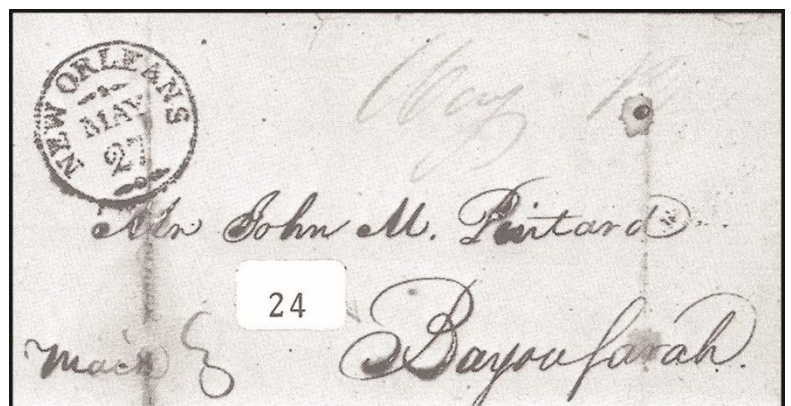 NEW ORLEANS
MAY
27
Way
Mr John M. Pintard
24
Bayou Sarah.